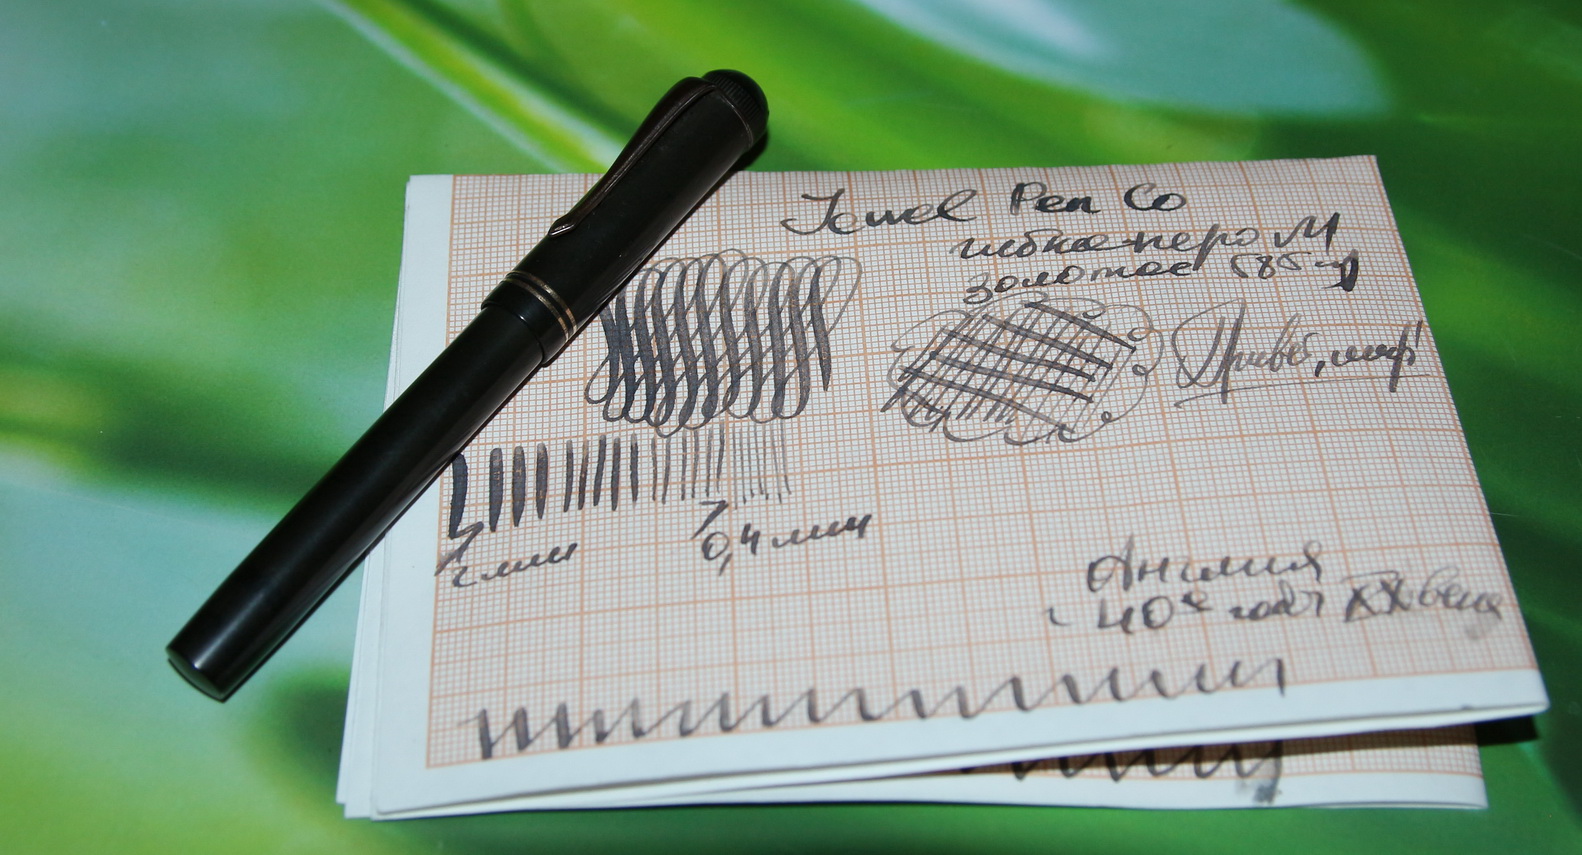 Jewel Pen Co
гибкое перо M
золотое 585-я
Привет, мир!
2 мм
0,4 мм
Англия
~ 40е годы XX века